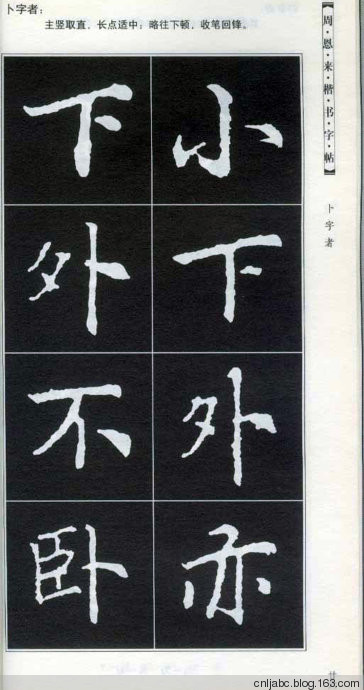 卜字者：
主竖取直，长点适中；略往下顿，收笔回锋。
【周·恩·来·楷·书·字·帖】
卜字者
小下外亦
下外不卧
cnljabc.blog.163.com